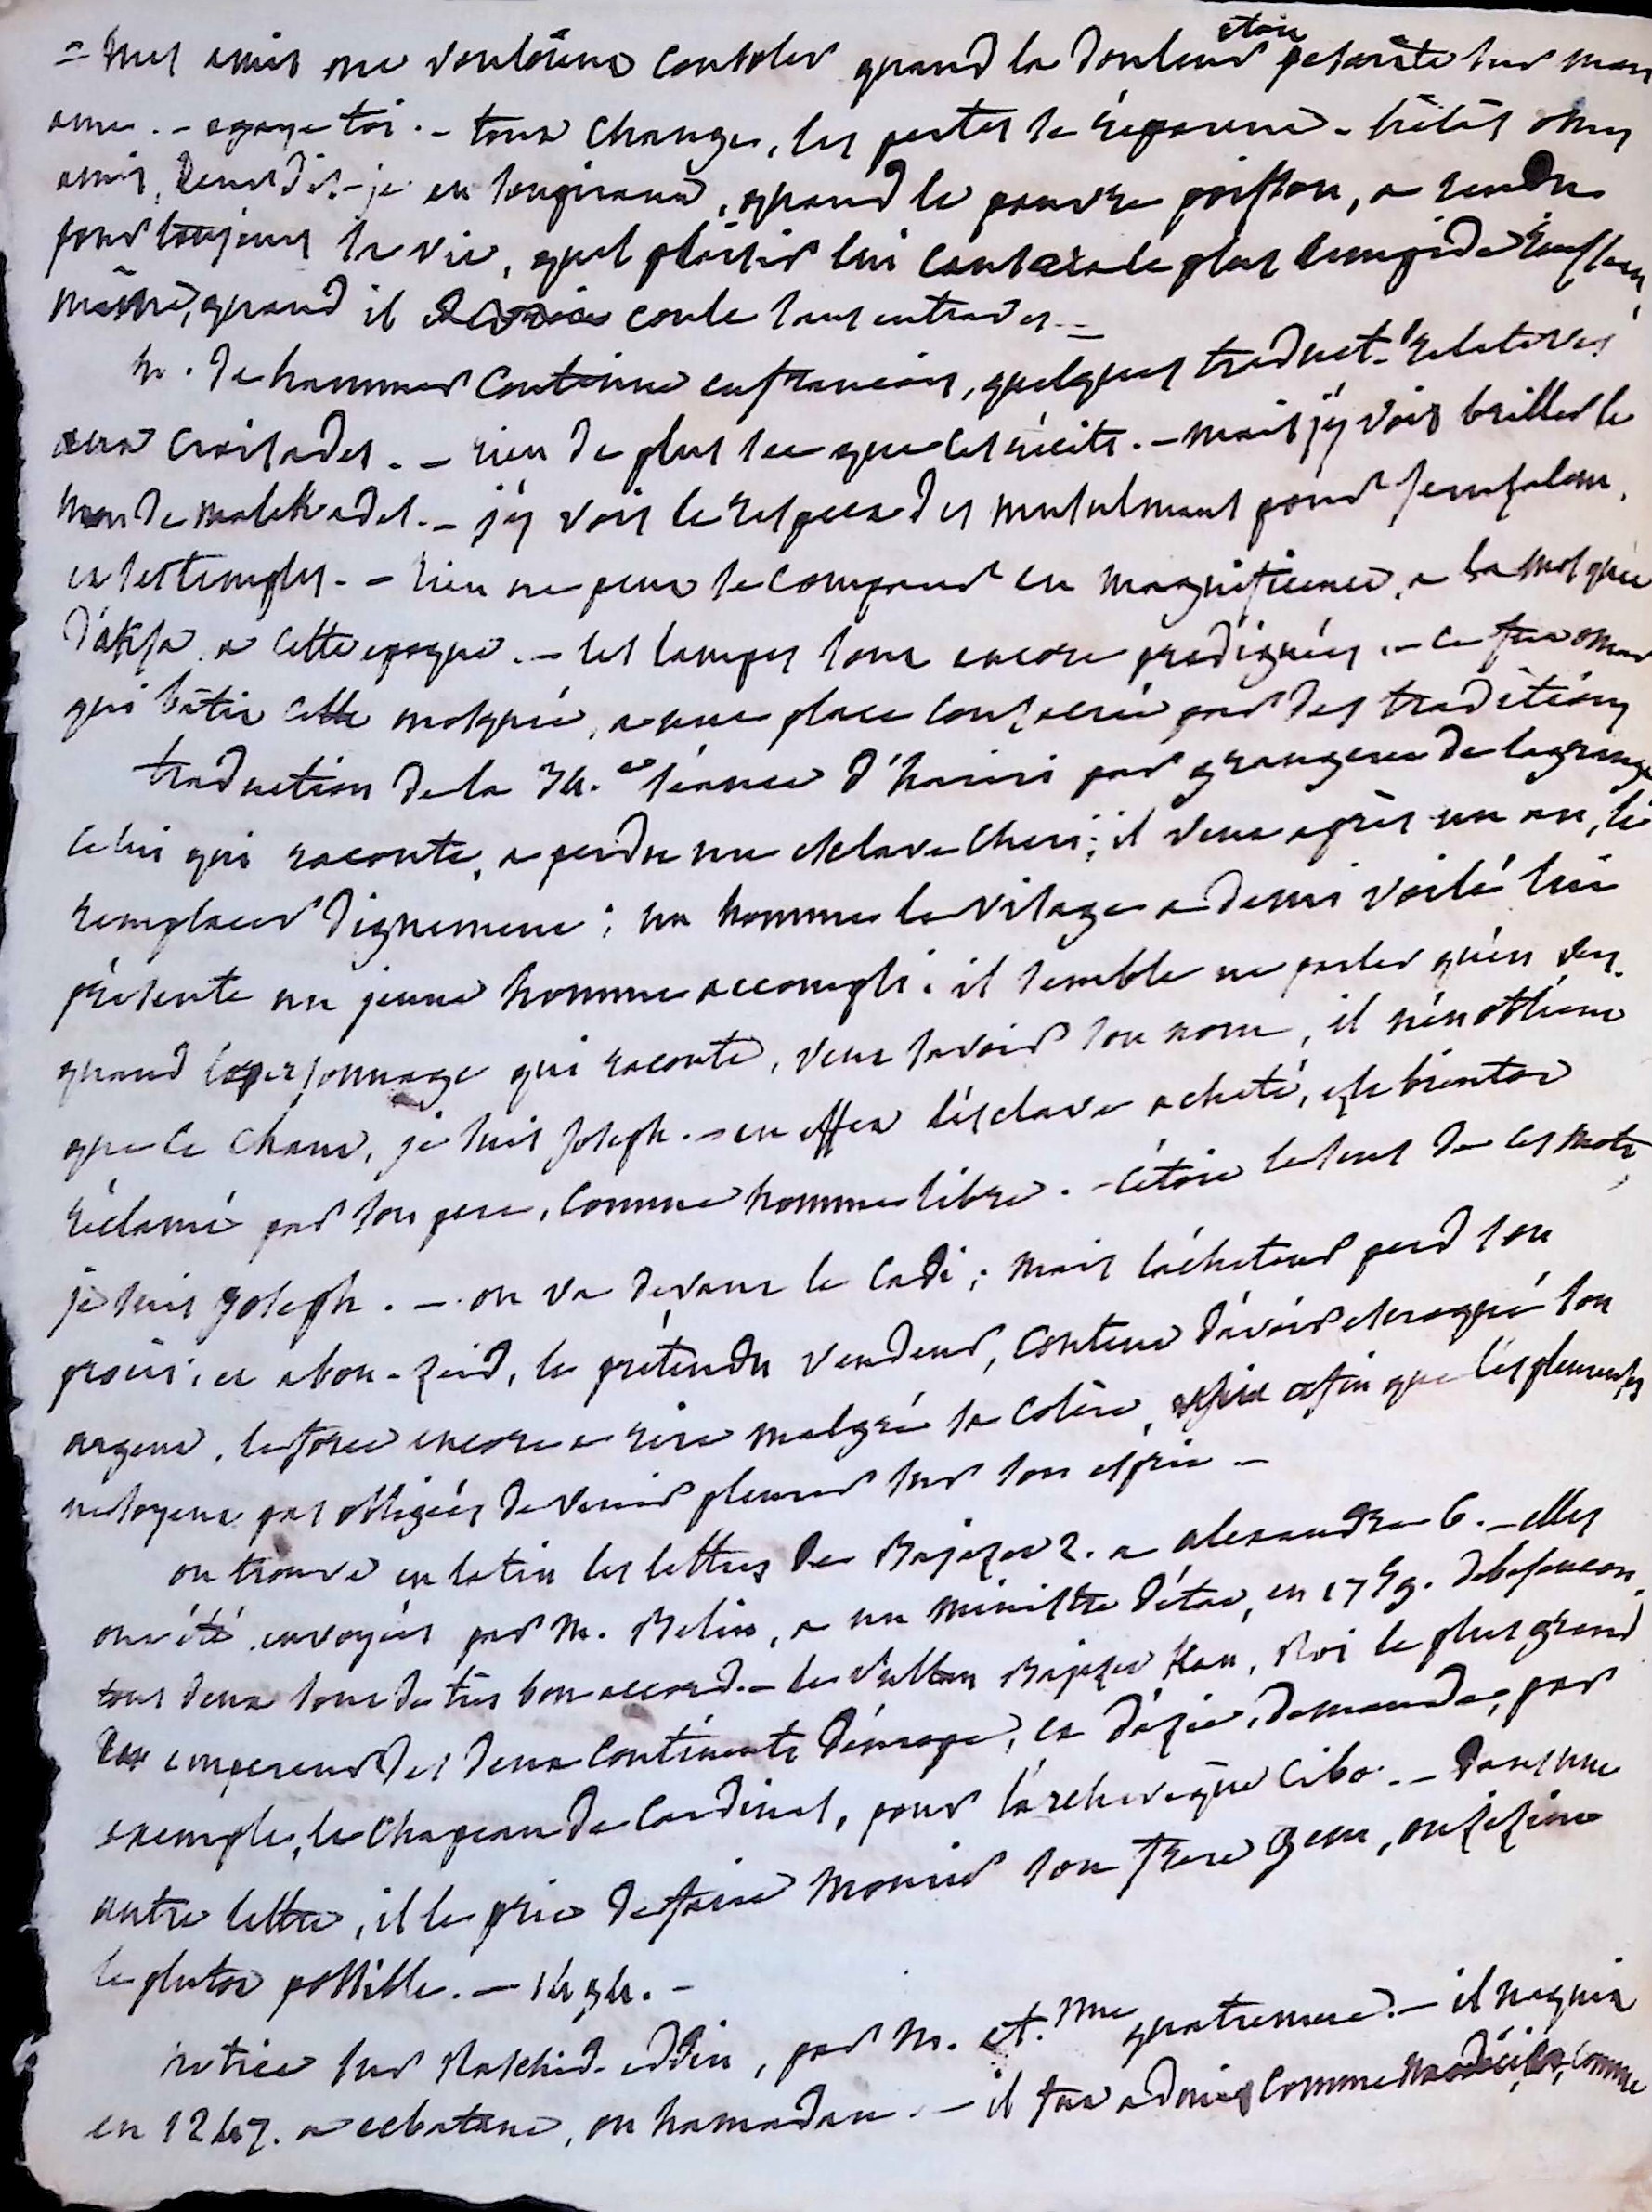 = mes amis me vouloient consoler quand la douleur etoit pesante sur mon
ame. - egaye toi. - tout change, les pertes se réparent. - hélas mes
amis, leur dis-je en soupirant, quand le pauvre poisson, a rendu
pour toujours la vie, quel plaisir lui causera le plus limpide ruisseau,
même, quand il coule sans entraves. =
m. de hammer continue en français, quelques traduct.s relatives
aux croisades. - rien de plus sec que ces récits. - mais j'y vois briller le
nom de malek adel. - j'y vois le respect des musulmans pour Jerusalem,
et ses temples. - rien ne peut se comparer en magnificence, a la mosquée
d'aksa a cette epoque. - les lampes sont encore prodiguées. - ce fut omar
qui bâtit cette mosquée, a une place consacrée par des traditions
traduction de la 34.e séance d'hariri par grangeret de lagrange
celui qui raconte, a perdu un esclave cheri; il veut après un an, le
remplacer dignement; un homme le visage a demi voilé lui
présente un jeune homme accompli. il semble ne parler qu'en vers.
quand le personnage qui raconte, veut savoir son nom, il n'en obtient
que ce chant, je suis Joseph. - en effet l'ésclave acheté, est bientot
réclamé par son pere, comme homme libre. - c'étoit le sens de ces mots,
je suis Joseph. - on va devant le cadi; mais l'acheteur perd son
procès; et abou-zeid, le prétendu vendeur, content d'avoir escroqué son
argent, le force encore a rire malgré sa colère, afin que les pleureuses
ne soyent pas obligées de venir pleurer sur son esprit -
on trouve en latin les lettres de Bajazet 2. a alexandre 6. - elles
ont été envoyées par m. Belin, a un ministre d'état, en 1759. de besancon.
tous deux sont de très bon accord. - le sultan Bajazet Kan, Roi le plus grand
empereur des deux continents d'éurope, et d'ázie, demande, par
exemple, le chapeau de cardinal, pour l'archevêque Cibo. - dans une
autre lettre, il le prie de faire mourir son frere Gem, ou Zizime
le plutot possible. - 1494. -
notice sur Raschid-eddin, par m. et.nne quatremere. - il naquit
en 1247. a ecbatane, ou hamadan. - il fut admis comme médecin, comme